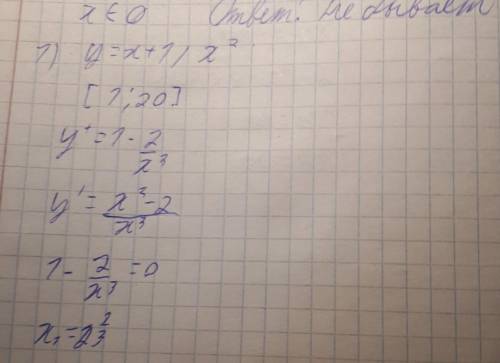 x ∈ 0 Ответ: не бывает
1) y = x + 1 / x²
[1; 20]
y' = 1 - 2/x³
y' = x³ - 2 / x³
1 - 2/x³ = 0
x₁ = 2^(2/3)